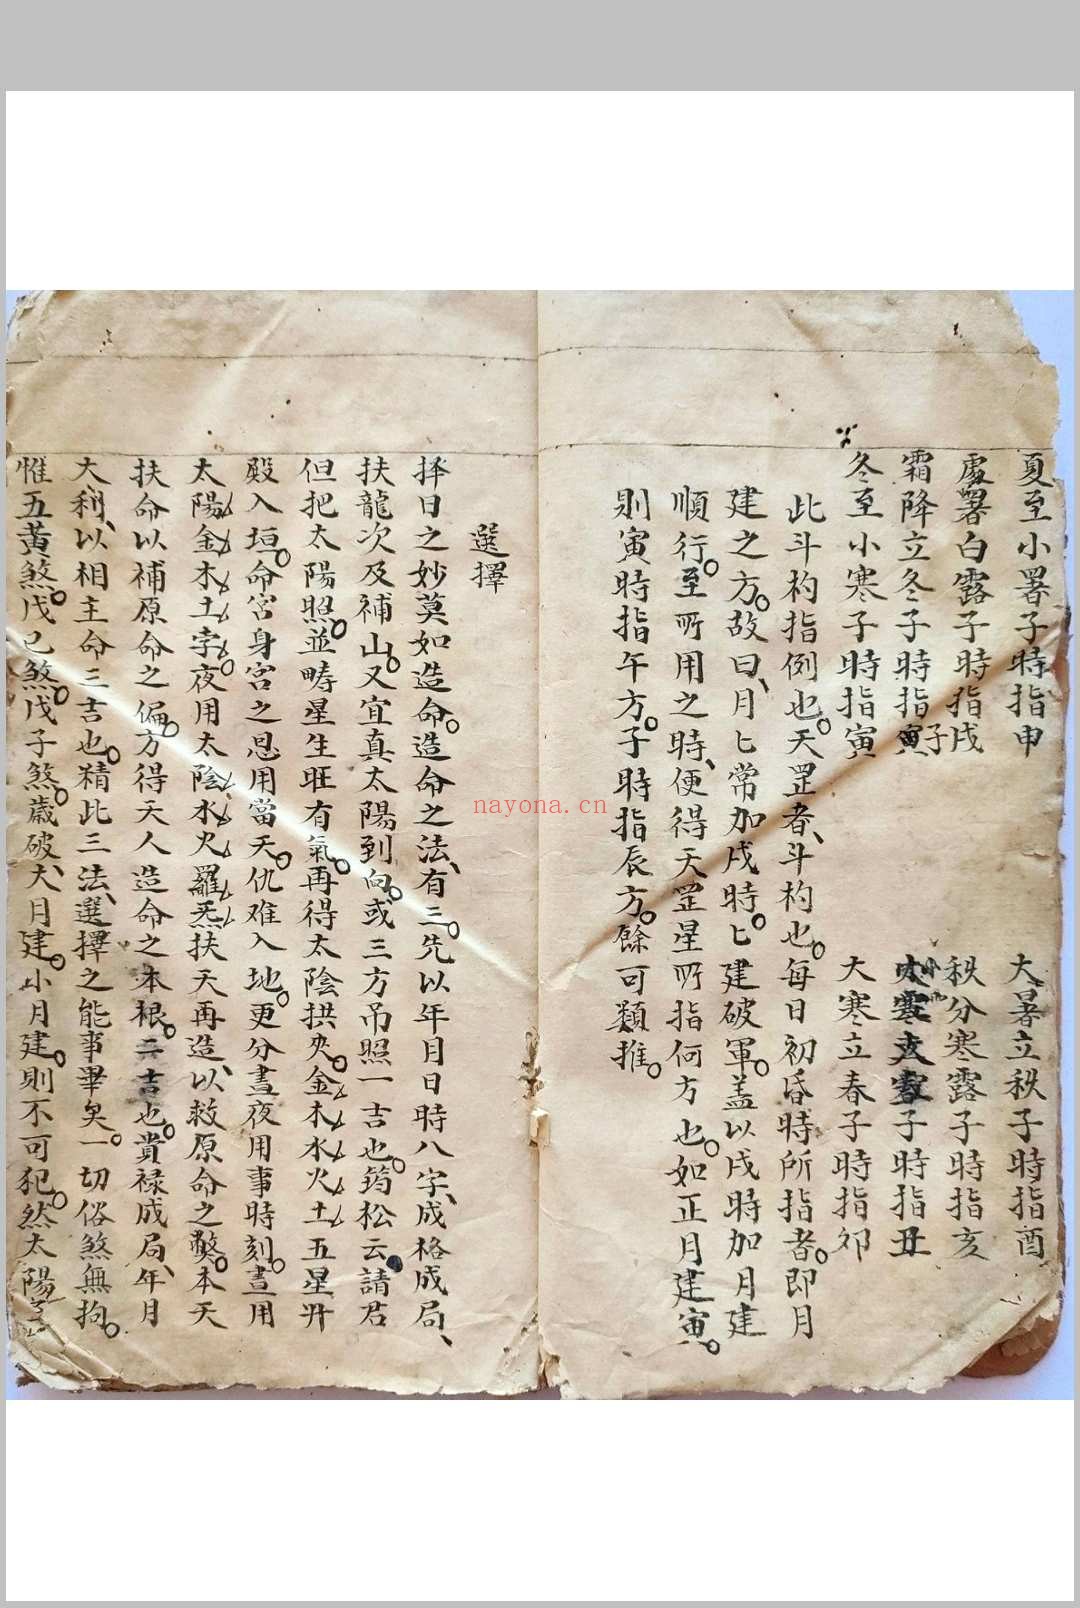 夏至小署子時指申　大暑立秋子時指酉
處署白露子時指戌　秋分寒露子時指亥
霜降立冬子時指子　小雪大雪子時指丑
冬至小寒子時指寅　大寒立春子時指卯
此斗杓指例也天罡者斗杓也每日初昏時所指者即月
建之方故曰月匕常加戌時匕建破軍盖以戌時加月建
順行至所用之時便得天罡星所指何方也如正月建寅
則寅時指午方子時指辰方餘可類推
選擇
择日之妙莫如造命造命之法有三先以年月日時八字成格成局
扶龍次及補山又宜真太陽到向或三方吊照一吉也筠松云請君
但把太陽照並疇星生旺有氣再得太陰拱夾金木水火土五星升
殿入垣命宮身宮之恩用當天仇难入地更分晝夜用事時刻晝用
太陽金木土孛夜用太陰水火羅炁扶天再造以救原命之弊本天
扶命以補原命之偏方得天人造命之本根二吉也貴禄成局年月
大利以相主命三吉也精此三法選擇之能事畢矣一切俗煞無拘
惟五黃煞戊己煞戊子煞歲破大月建小月建則不可犯然太陽
nayona.cn